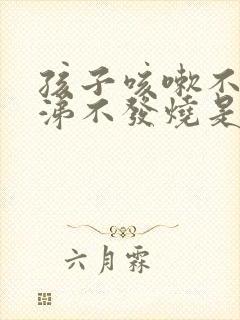 孩子咳嗽不
涕不發燒是
六月霖